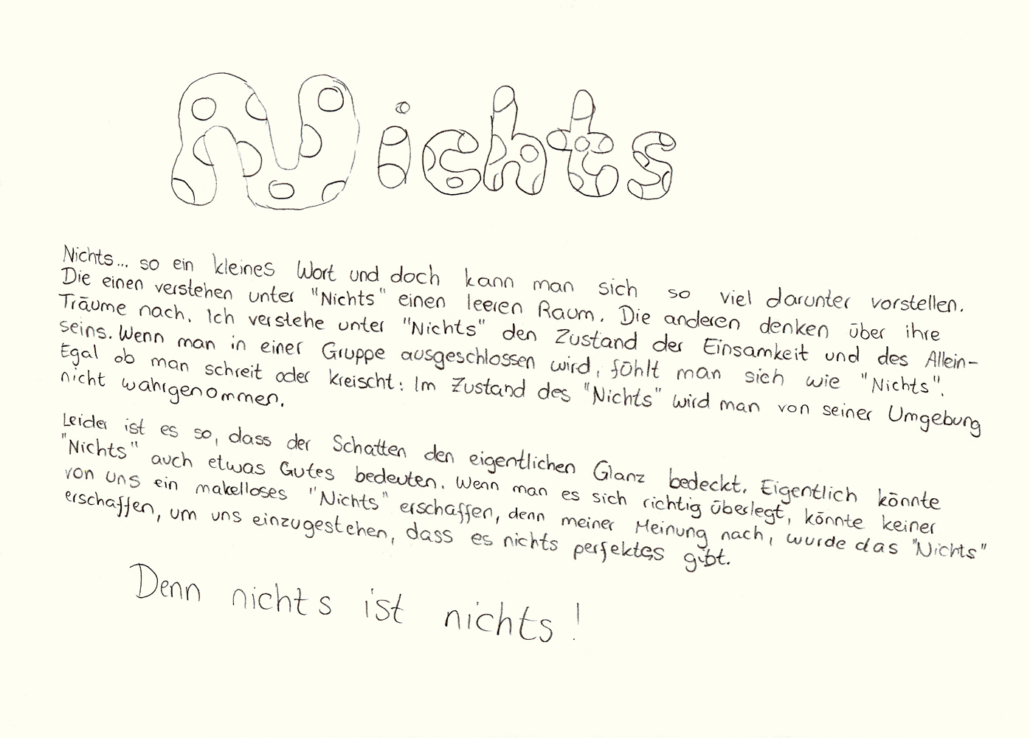 Nichts
Nichts... so ein kleines Wort und doch kann man sich so viel darunter vorstellen.
Die einen verstehen unter "Nichts" einen leeren Raum. Die anderen denken über ihre
Träume nach. Ich verstehe unter "Nichts" den Zustand der Einsamkeit und des Allein-
seins. Wenn man in einer Gruppe ausgeschlossen wird, fühlt man sich wie "Nichts".
Egal ob man schreit oder kreischt: Im Zustand des "Nichts" wird man von seiner Umgebung
nicht wahrgenommen.
Leider ist es so, dass der Schatten den eigentlichen Glanz bedeckt. Eigentlich könnte
"Nichts" auch etwas Gutes bedeuten. Wenn man es sich richtig überlegt, könnte keiner
von uns ein makelloses "Nichts" erschaffen, denn meiner Meinung nach, wurde das "Nichts"
erschaffen, um uns einzugestehen, dass es nichts perfektes gibt.
Denn nichts ist nichts!